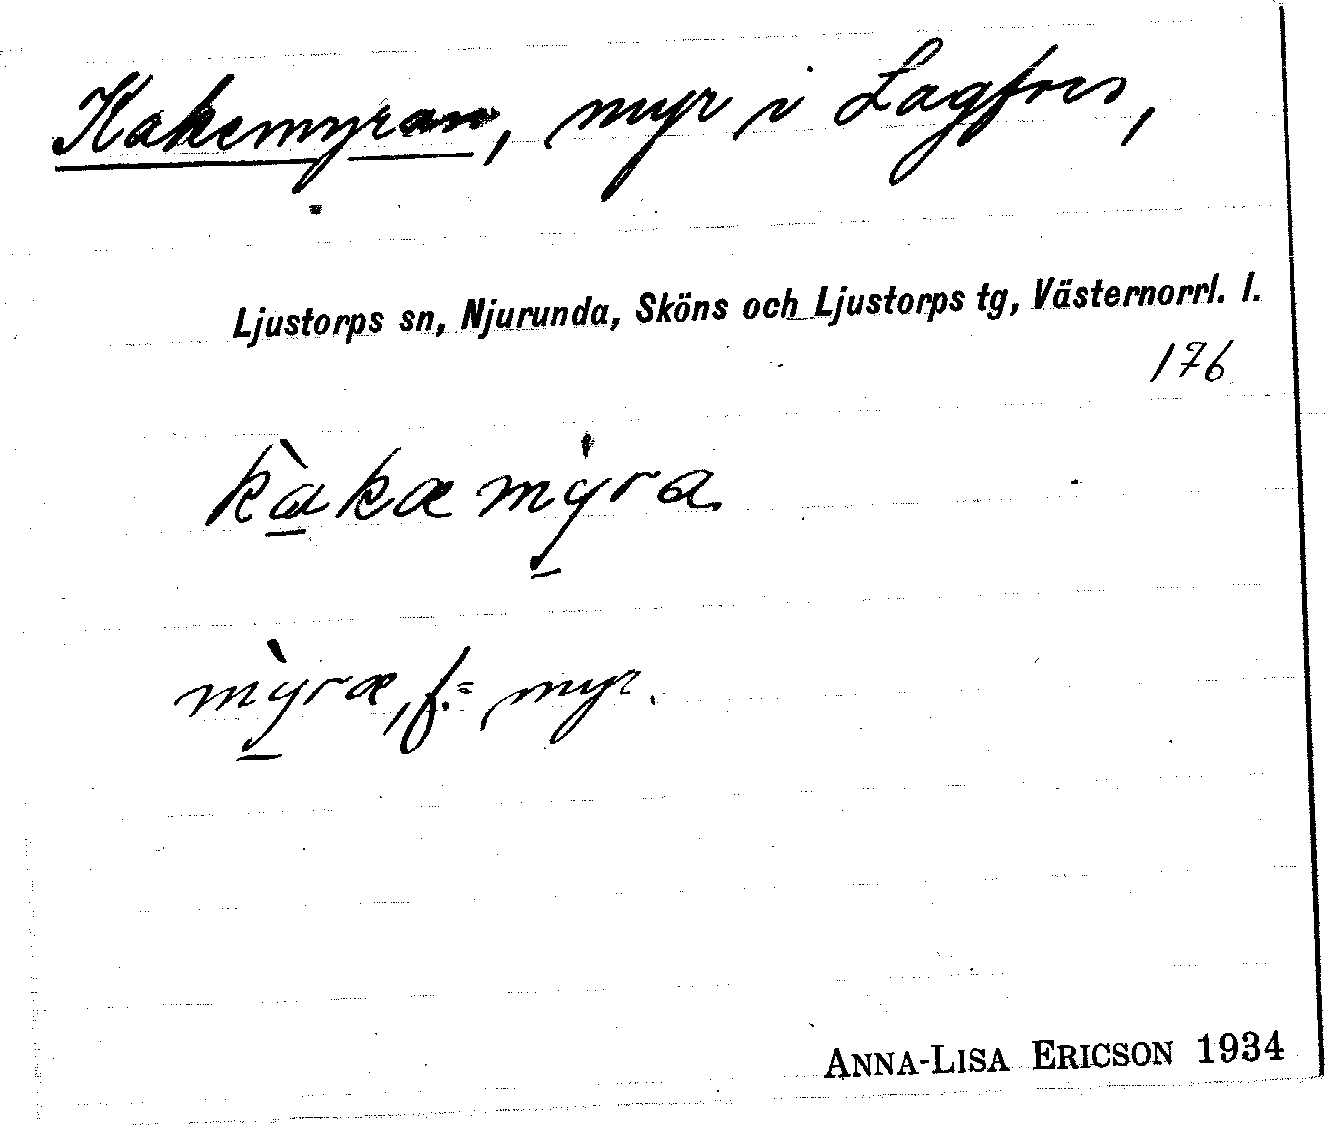 Kakemyran, myr i Lagfors,
Ljustorps sn, Njurunda, Sköns och Ljustorps tg, Västernorrl. l.
176
kàkæmyra
mỳræ, f. = myr.
ANNA-LISA ERICSON 1934